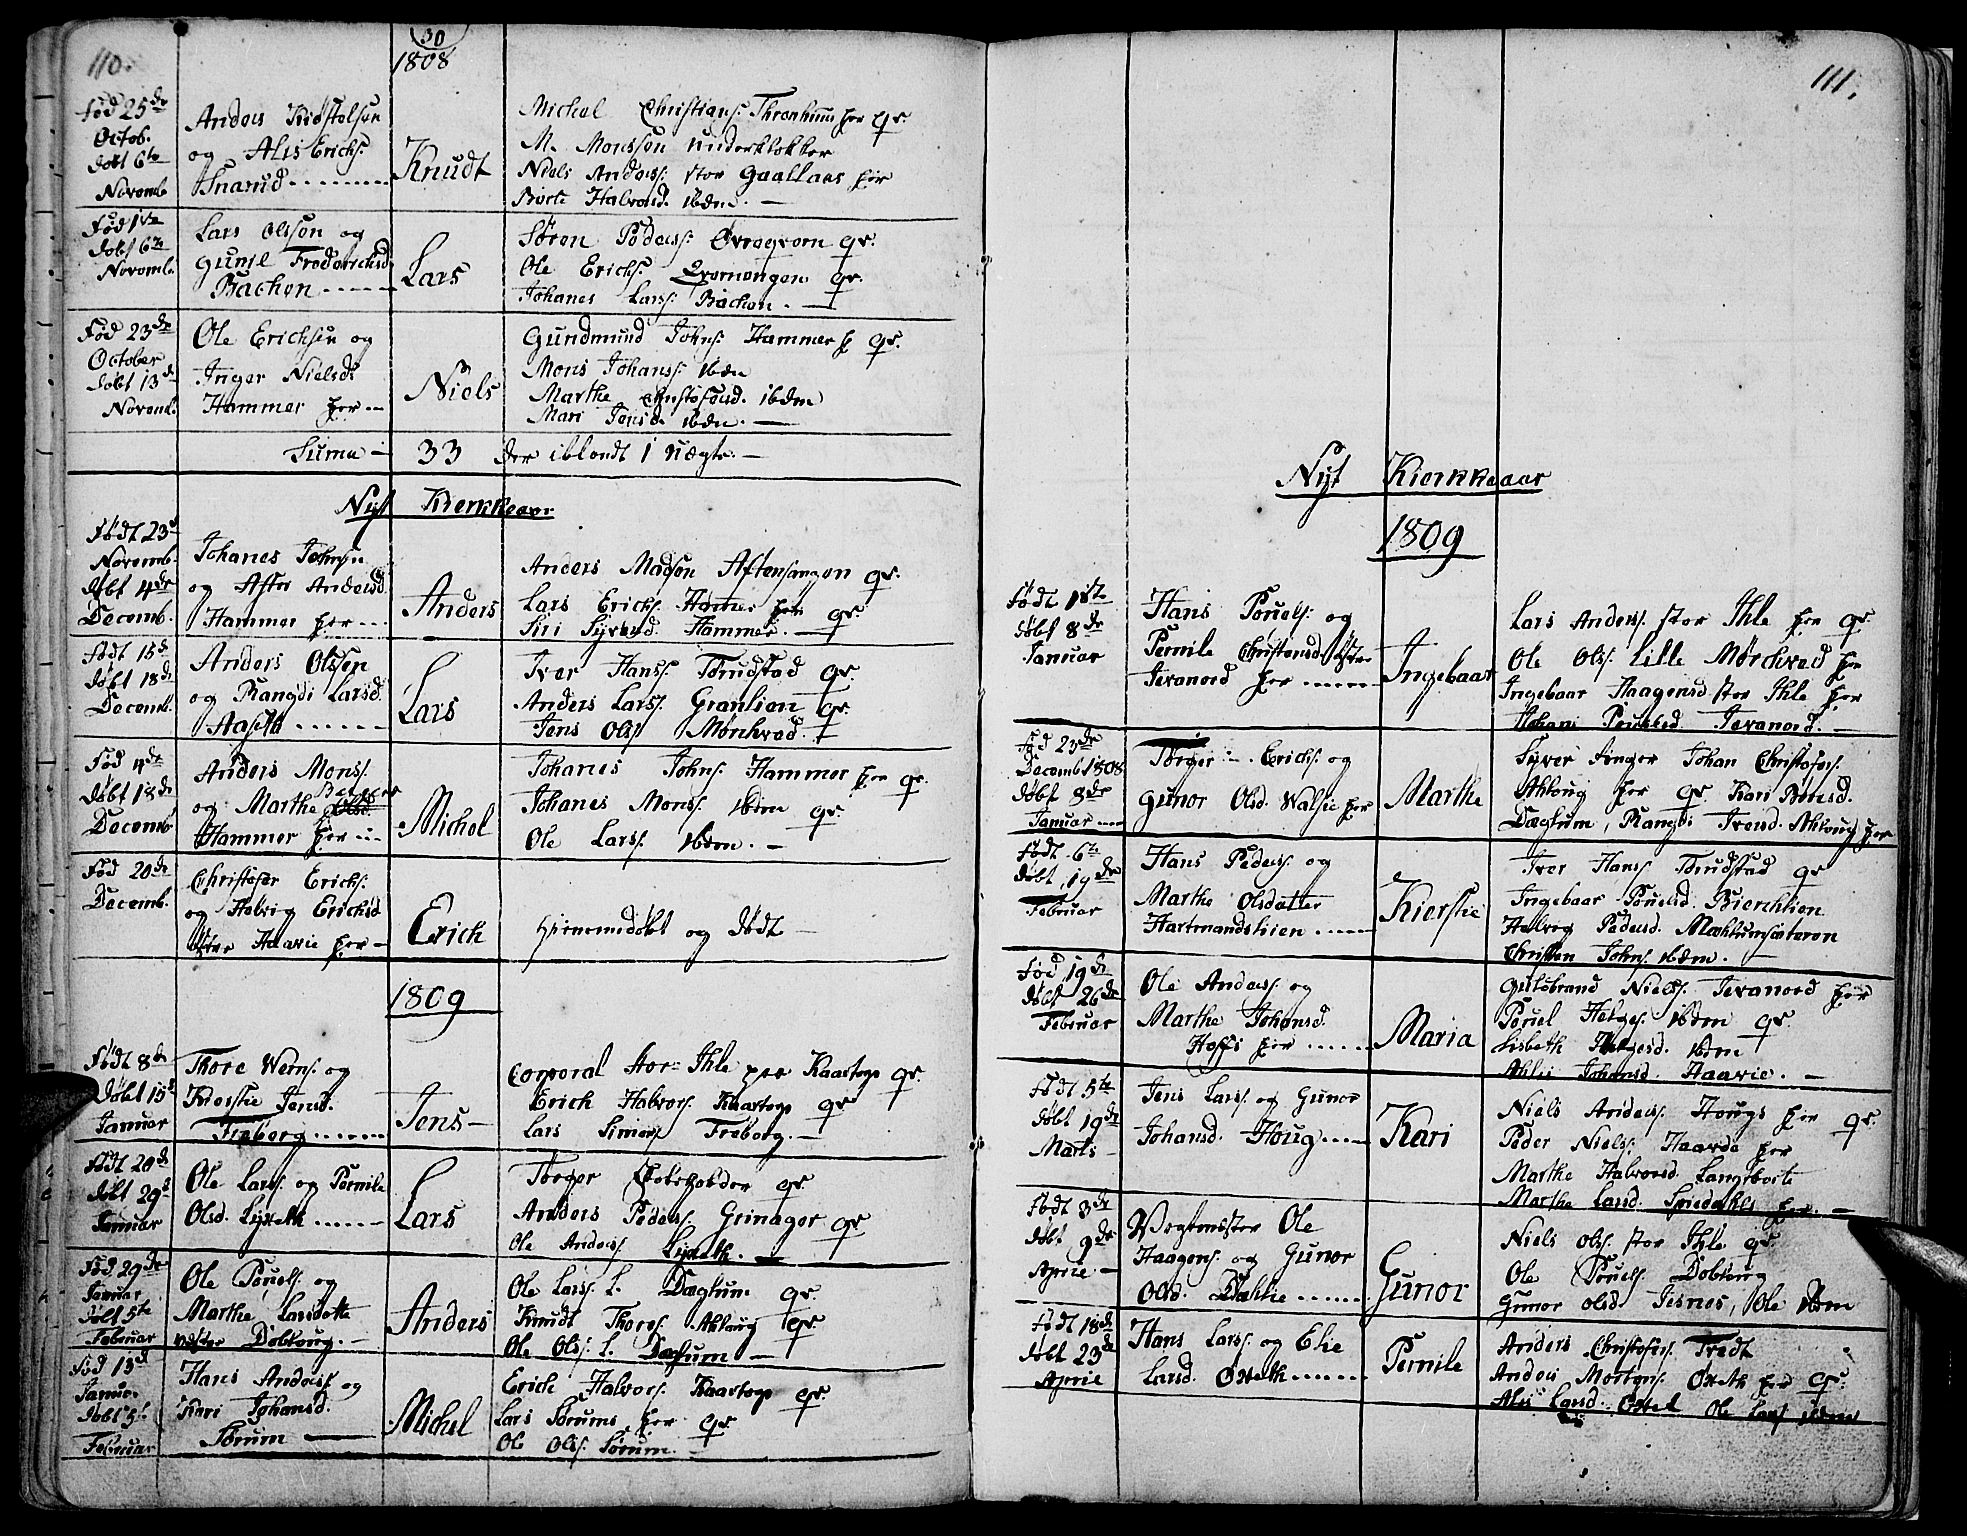 110.
30
1808
Fød 25de
Octob.
døbt 6te
Novemb
Anders Kristofsen
og Alis Erichs:
Snarud
Knudt
Michel Christians: Thronhuus her qr
M. Monssen underklokker
Niels Anders: stor Gaallaas her
Birte Halvorsd. ibdm.
Fød 1ste
døbt 6te
Novemb.
Lars Olsson og
Gunil Frederichsd
Bachen
Lars
Søren Peders: qr.
Ole Erichs: Qvernengen qr.
Johanes Larss: Bachen.
Fød 23de
October
døbt 13de
Novemb.
Ole Erichsen og
Inger Nielsd:
Hammer her
Niels
Gundmund Johns: Hammer h qr.
Mons Johanss: ibdm
Marthe Christofersd. ibdm
Mari Jensd. ibdm.
Suma 33 der iblandt 1 uægte.
Nyt Kierkkeaar
Født 23d
Novemb.
døbt 4de
Decemb.
Johanes Johnsen
og Andersd
Hammer her
Anders
Anders Madsen Aftensangen qr.
Lars Erichs: Hamer her qr.
Siri Syversd. Hammer.
Født 15d
døbt 18de
Decemb.
Anders Olssen
og Rangdi Larsd
Aaseth
Lars
Iver Hanss: Torudstad qr.
Anders Larss: Granlien qr.
Jens Olss Mørchved.
Fød 4de
døbt 18de
Decemb
Anders Monss:
og Marthe
Hammer her
Michel
Johanes Johns: Hammer her qr.
Johanes Monss: ibdm qr.
Ole Larss: ibdm.
Fød 20de
Decemb.
Christofer Erichs:
og Helvig Erichsd
Haavie her
Erich
Hiemedøbt og dødt
1809
Født 8de
døbt 15d
Januar
Thore Werns: og
Kierstie Jensd.
Freberg
Jens
Corporal Stor-Ihle paa Kaartorp qr.
Erich Halvors: Kaartorp qr
Lars Simens Freberg.
Født 20de
døbt 29d
Januar
Ole Larss: og Pernile
Olsd. Lyseth
Lars
Torger qr.
Anders Peders: Grinager qr
Ole Anders: Lyseth.
Fød 29de
Januar
døbt 5te
Februar
Ole Pouels: og
Marthe Larsdotte
vester Dobloug.
Anders
Ole Larss: l. Dæglum. qr.
Knudt Thores: Ahloug qr
Ole Olss: l. Dæglum
Fød 13d
Januar
døbt 5t
Februar
Hans Anders: og
Kari Johansd.
Sørum
Michel
Erich Halvors: Kaartorp qr.
Lars Sørums her qr.
Ole Olss: Sørum.
111.
Nyt Kierkkeaar
1809
Født 1ste
døbt 8de
Januar
Hans Pouels: og
Pernile Christensd. øster
Jevanord her
Ingebaar
Lars Anders: stor Ihle her qr
Ole Olss: Lille Mørchved her
Ingebaar Haagensd. stor Ihle her
Johani Pouelsd. Jevanord.
Fød 23de
Decemb 1808
døbt 8de
Januar
Torger Erichs: og
Gunor Olsd. Walsie her
Marthe
Syver Finger Johan Christofers:
Ahloug her qr. Kari Bensd.
Dæglum, Rangdi Iversd. Ahloug her
Født 6te
døbt 19de
Februar
Hans Peders: og
Marthe Olsdatter
Hartmandshien
Kierstie
Iver Hanss: Torudstad qr
Ingebaar Pouelsd. Bierchlien
Helvig Pedersd. Mæhlumsæteren
Christen Johns: ibdm.
Fød 19de
døbt 26de
Februar
Ole Anders: og
Marthe Johansd.
Hoffs her
Maria
Gulbrand Nielss: Jevanord her
Pouel Helges: ibdm qr.
Lisbeth Helgesd. ibdm
Ahlis Johansd. Haavie.
Født 5te
døbt 19de
Marts
Jens Larss: og Gunor
Johansd. Houg
Kari
Niels Anders: Hougs her qr.
Peder Niels: Haavde her
Marthe Halvorsd. Langbørte
Marthe Larsd. her.
Født 3de
døbt 9de
Aprile
Vegtmester Ole
Haagens: og Gunor
Olsd. Dæhlie
Gunor
Niels Olss: stor Ihle qr.
Ole Pouels: Dobloug
Gunor Olsd Jesnes, Ole ibdm
Født 18de
døbt 23de
Aprile
Hans Larss: og Elie
Larsd. Oseth
Pernile
Anders Christofers: Tredt
Anders Mortens: Oseth her qr.
Alis Larsd. Oset Ole Lars: ibdm